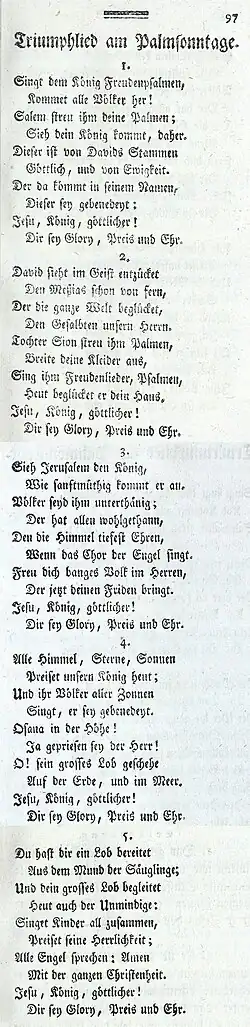 97
Triumphlied am Palmsonntage.
1.
Singt dem König Freudenpsalmen,
Kommet alle Völker her!
Salem streu ihm deine Palmen;
Sieh dein König kommt, daher.
Dieser ist von Davids Stammen
Göttlich, und von Ewigkeit.
Der da kömmt in seinem Namen,
Dieser sey gebenedeyt:
Jesu, König, göttlicher!
Dir sey Glory, Preis und Ehr.
2.
David sieht im Geist entzücket
Den Meßias schon von fern,
Der die ganze Welt beglücket,
Den Gesalbten unsern Herrn.
Tochter Sion streu ihm Palmen,
Breite deine Kleider aus,
Sing ihm Freudenlieder, Psalmen,
Heut beglücket er dein Haus.
Jesu, König, göttlicher!
Dir sey Glory, Preis und Ehr.
3.
Sieh Jerusalem den König,
Wie sanftmüthig kommt er an.
Völker seyd ihm unterthänig;
Der hat allen wohlgethann,
Den die Himmel tiefest Ehren,
Wenn das Chor der Engel singt.
Freu dich banges Volk im Herren,
Der jetzt deinen Friden bringt.
Jesu, König, göttlicher!
Dir sey Glory, Preis und Ehr.
4.
Alle Himmel, Sterne, Sonnen
Preiset unsern König heut;
Und ihr Völker aller Zonnen
Singt, er sey gebenedeyt.
Osana in der Höhe!
Ja gepriesen sey der Herr!
O! sein grosses Lob geschehe
Auf der Erde, und im Meer.
Jesu, König, göttlicher!
Dir sey Glory, Preis und Ehr.
5.
Du hast dir ein Lob bereitet
Aus dem Mund der Säuglinge;
Und dein grosses Lob begleitet
Heut auch der Unmündige:
Singet Kinder all zusammen,
Preiset seine Herrlichkeit;
Alle Engel sprechen: Amen
Mit der ganzen Christenheit.
Jesu, König, göttlicher!
Dir sey Glory, Preis und Ehr.